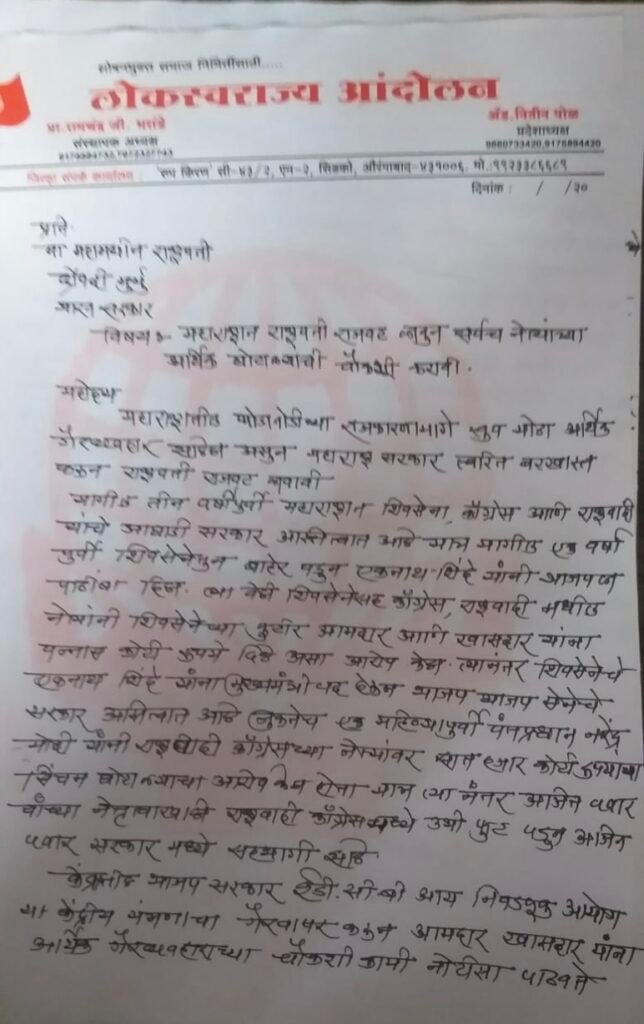 शोषणमुक्त समाज निर्मितीसाठी.....
लोकस्वराज्य आंदोलन
प्रा. रामचंद्र जी. भरांडे
संस्थापक अध्यक्ष
अॅड. नितीन पोळ
प्रदेशाध्यक्ष
जिल्हा संपर्क कार्यालय : 'रुप किरण' सी-४३/२, एन-२, सिडको, औरंगाबाद-४३१००६. मो.-९९२३३८६६८९
दिनांक : / /२०
प्रति
मा महामहीम राष्ट्रपती
द्रौपदी मुर्मु
भारत सरकार
विषय :- महाराष्ट्रात राष्ट्रपती राजवट लावुन सर्वच नेत्यांच्या
आर्थिक घोटाळ्यांची चौकशी करावी.
महोदय
महाराष्ट्रातील फोडाफोडीच्या राजकारणामागे खुप मोठा आर्थिक
गैरव्यवहार असुन महाराष्ट्र सरकार त्वरित बरखास्त
करुन राष्ट्रपती राजवट लावावी
मागील तीन वर्षापुर्वी महाराष्ट्रात शिवसेना, काँग्रेस आणि राष्ट्रवादी
यांचे आघाडी सरकार अस्तित्वात आले मात्र मागील एक वर्षा
पुर्वी शिवसेनेतुन बाहेर पडुन एकनाथ शिंदे यांनी भाजपला
पाठींबा दिला. त्या वेळी शिवसेनेसह काँग्रेस, राष्ट्रवादी मधील
नेत्यांनी शिवसेनेच्या फुटीर आमदार आणि खासदार यांना
पन्नास कोटी रुपये दिले असा आरोप केला. त्यानंतर शिवसेनेचे
एकनाथ शिंदे यांना मुख्यमंत्रीपद देऊन भाजप सेनेचे
सरकार अस्तित्वात आले नुकतेच एक महिन्यापुर्वी पंतप्रधान नरेंद्र
मोदी यांनी राष्ट्रवादी काँग्रेसच्या नेत्यांवर हजार कोटी रुपयाचा
सिंचन घोटाळ्याचा आरोप केला होता मात्र त्या नंतर अजित पवार
यांच्या नेतृत्वाखाली राष्ट्रवादी काँग्रेसमध्ये उभी फुट पडुन अजित
पवार सरकार मध्ये सहभागी झाले
केंद्रातील भाजप सरकार ईडी. सी बी आय निवडणूक आयोग
या केंद्रीय यंत्रणाचा गैरवापर करुन आमदार खासदार यांना
आर्थिक गैरव्यवहाराच्या चौकशी कामी नोटीसा पाठवते